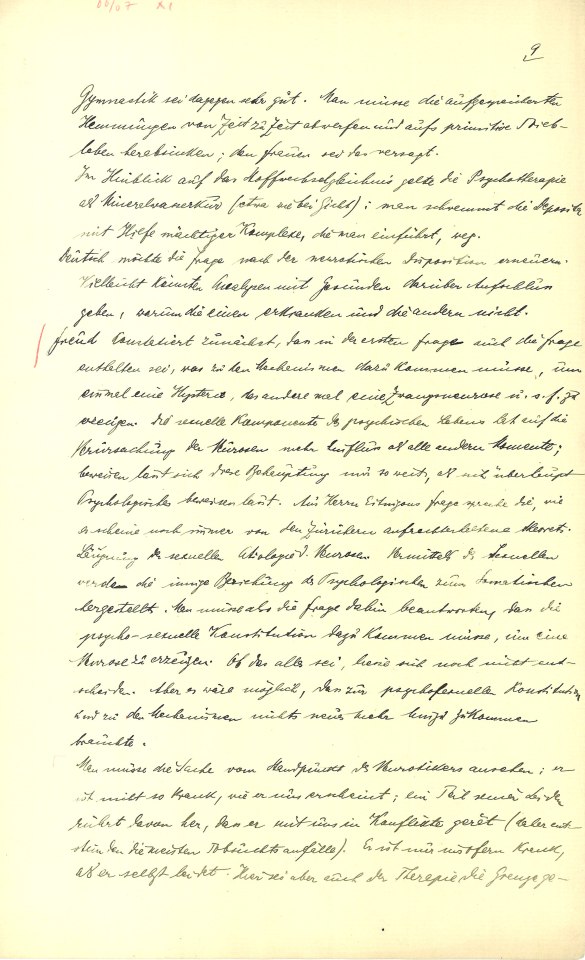 9
Gymnastik sei dagegen sehr gut. Man müsse die aufgespeicherten
Hemmungen von Zeit zu Zeit abwerfen und aufs primitive Trieb-
leben herabsinken; den Frauen sei das versagt.
Im Hinblick auf das Stoffwechselgleichnis gelte die Psychotherapie
als Mineralwasserkur (etwa wie bei Gicht): man schwemmt die Deposite
mit Hilfe mächtiger Komplexe, die man einführt, weg.
Deutsch möchte die Frage nach der neurotischen Disposition erneuern.
Vielleicht könnten Analysen mit Gesunden darüber Aufschluss
geben, warum die einen erkranken und die andern nicht.
Freud konstatiert zunächst, dass in der ersten Frage auch die Frage
enthalten sei, was zu den Mechanismen dazu kommen müsse, um
einmal eine Hysterie, das andere mal eine Zwangsneurose u. s. f. zu
erzeugen. Die sexuelle Komponente des psychischen Lebens hat auf die
Verursachung der Neurosen mehr Einfluss als alle andern Momente;
beweisen lasst sich diese Behauptung nur so weit, als sich überhaupt
Psychologisches beweisen lasst. Aus Herrn Eitingons Frage spreche die, wie
es scheine noch immer von den Zürchern aufrechterhaltene theoret.
Läugnung der sexuellen Ätiologie d. Neurosen. Vermittels des Sexuellen
werde die innige Beziehung des Psychologischen zum Somatischen
hergestellt. Man müsse also die Frage dahin beantworten, dass die
psycho-sexuelle Konstitution dazu kommen müsse, um eine
Neurose zu erzeugen. Ob das alles sei, liesse sich noch nicht ent-
scheiden. Aber es wäre möglich, dass zur psychosexuellen Konstitution
und zu den Mechanismen nichts neues mehr hinzu zu kommen
brauchte.
Man müsse die Sache vom Standpunkt des Neurotikers ansehen; er
ist nicht so krank, wie er uns erscheint; ein Teil seiner Leiden
rührt davon her, dass er mit uns in Konflikte gerät (daher ent-
stünden die meisten Tobsuchtsanfälle). Er ist nur insofern krank,
als er selbst leidet. Hier sei aber auch der Therapie die Grenze ge-